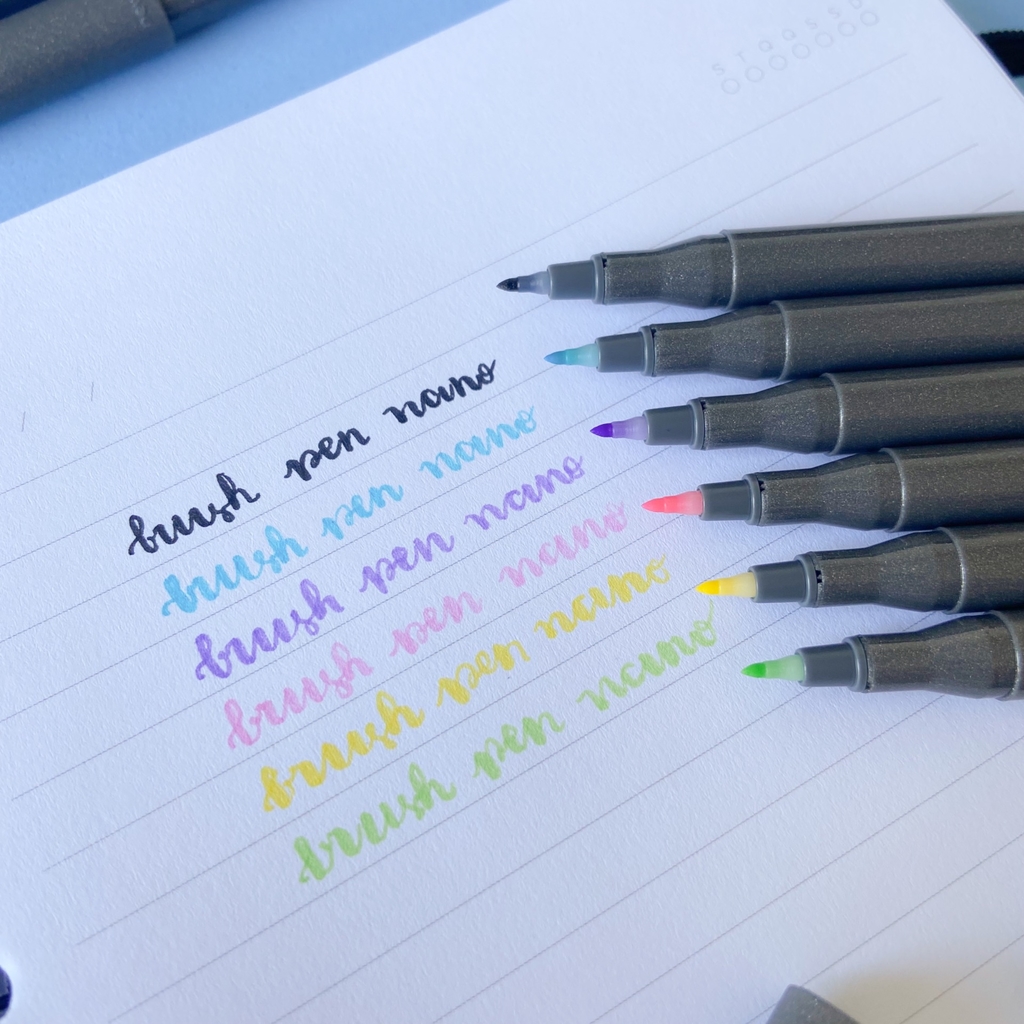 S T Q Q S S D
brush pen nano
brush pen nano
brush pen nano
brush pen nano
brush pen nano
brush pen nano